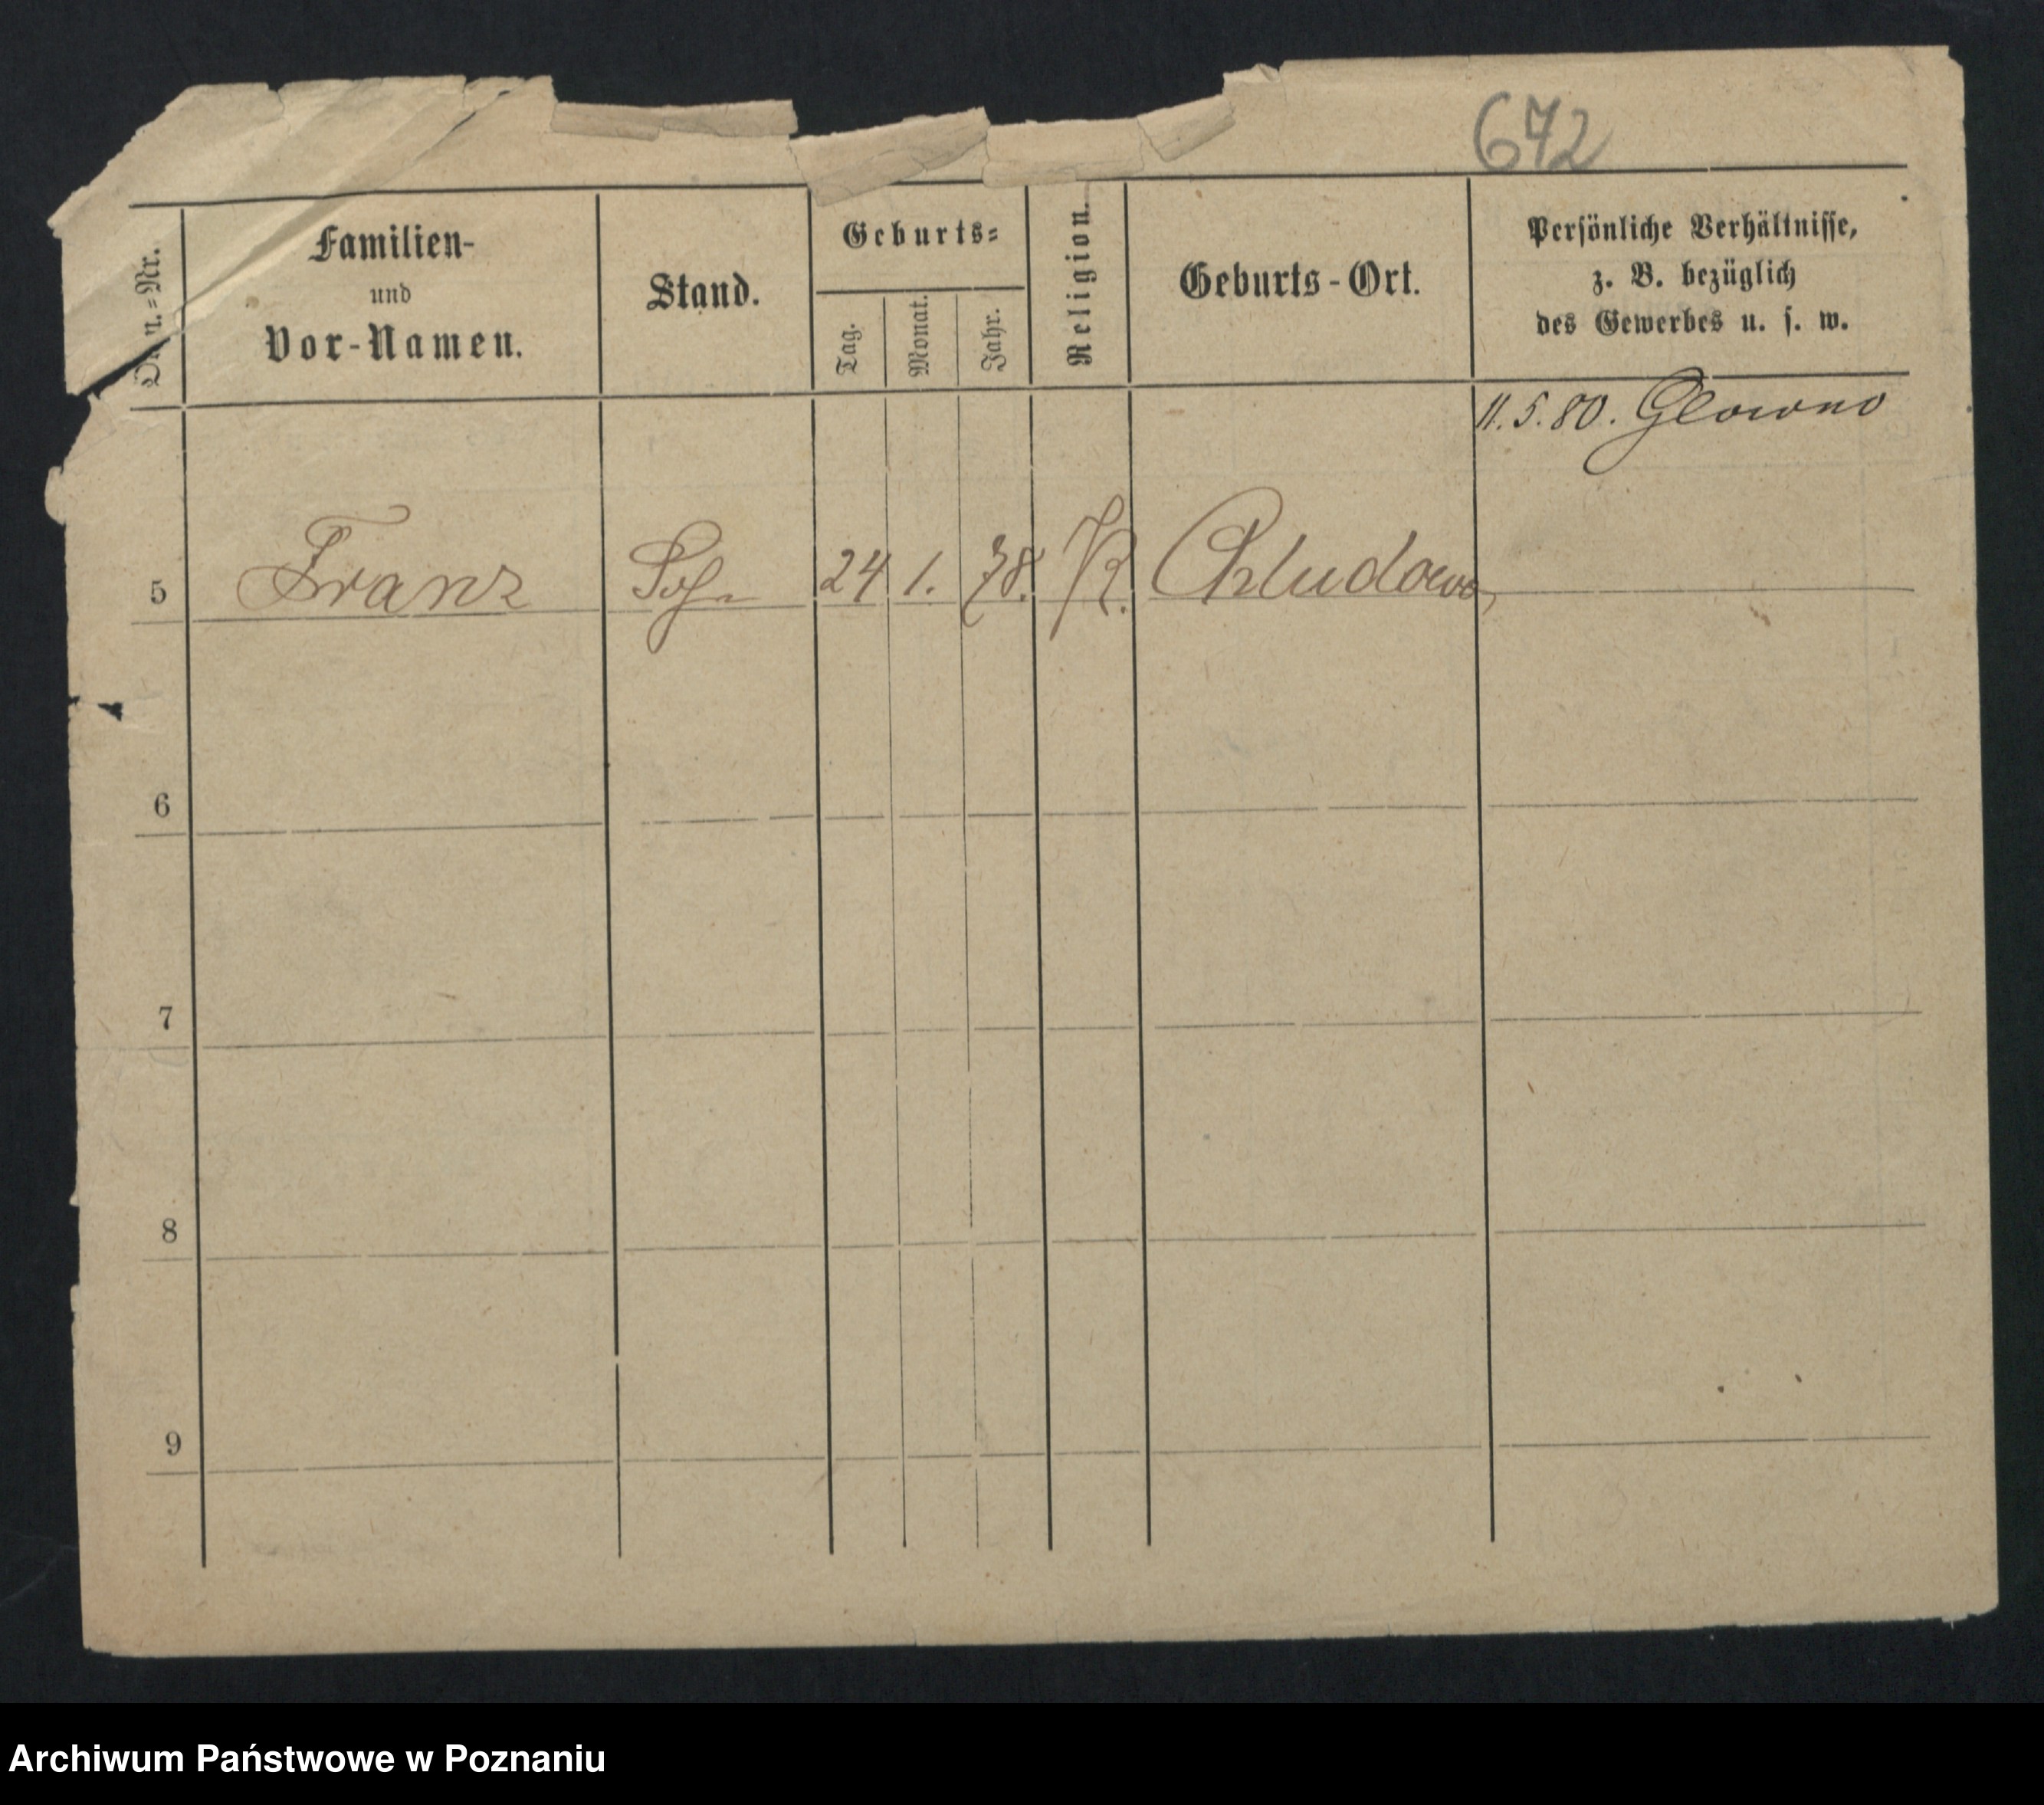 672
Familien-
und
Vor-Namen.
Stand.
Geburts-
Tag.
Monat.
Jahr.
Religion.
Geburts-Ort.
Persönliche Verhältnisse,
z. B. bezüglich
des Gewerbes u. s. w.
11. 5. 80. Glowno
5 Franz Sohn 24 1. 78. K. Chludowo
6
7
8
9
Archiwum Państwowe w Poznaniu